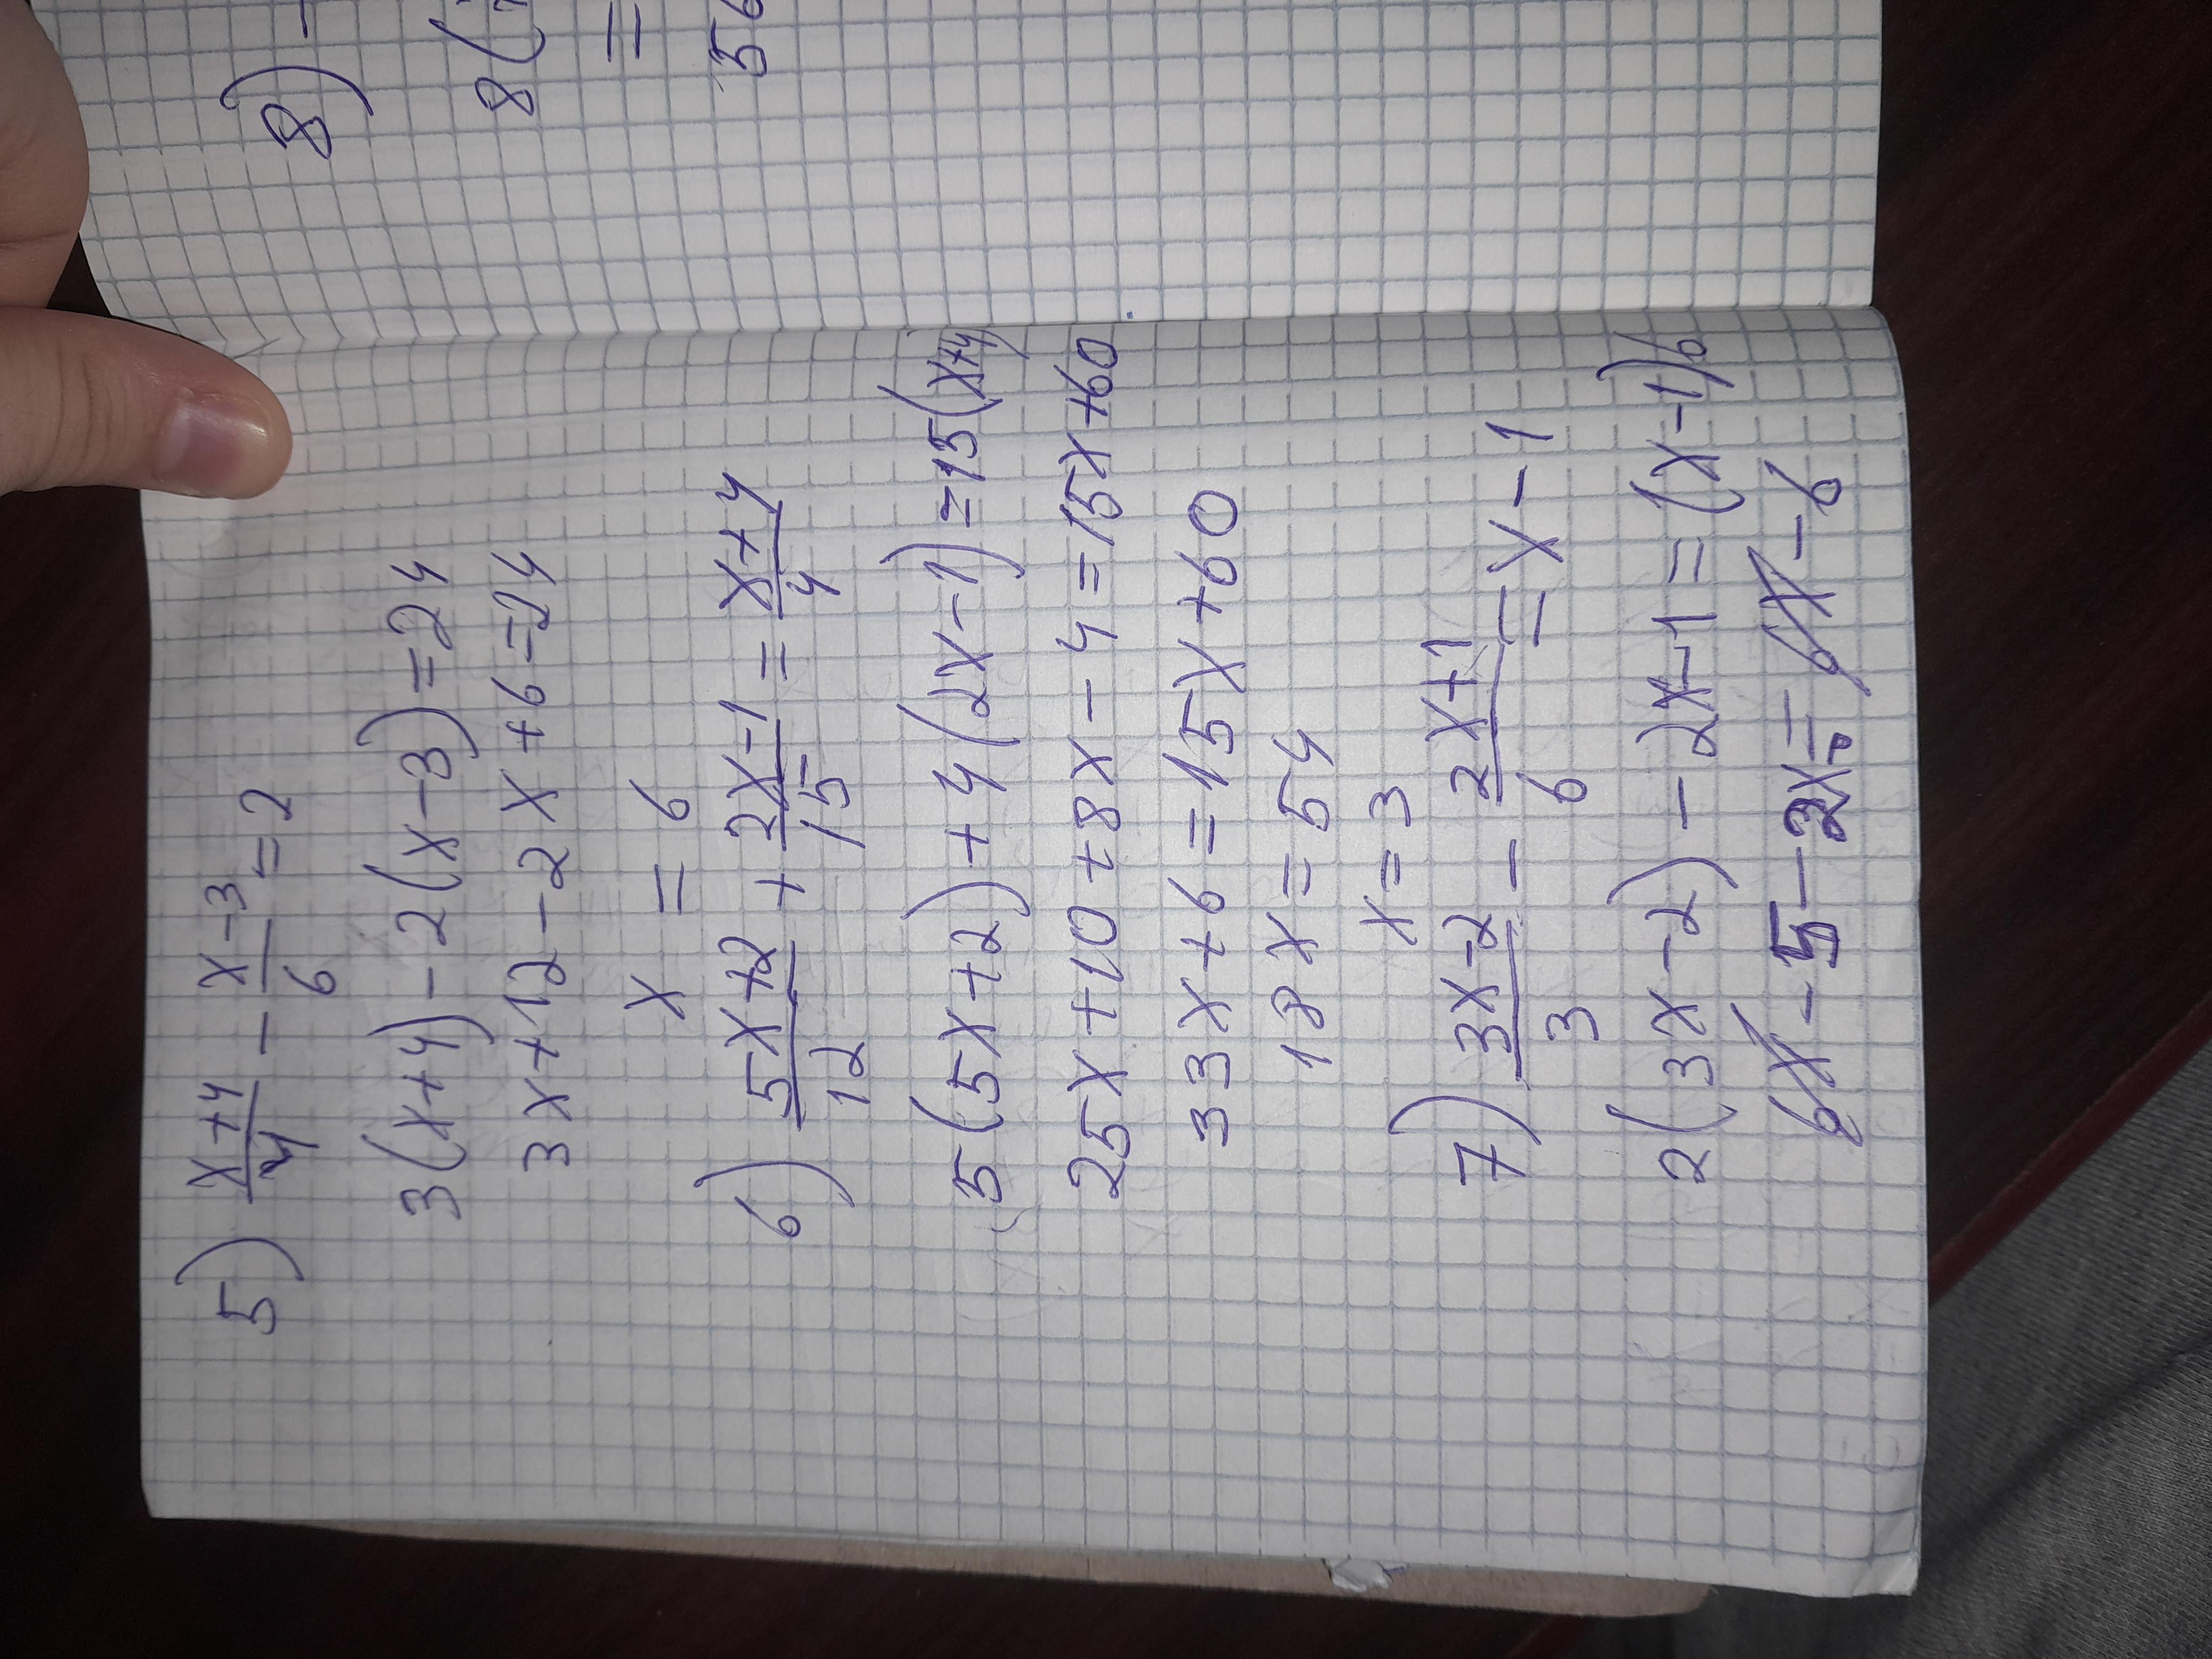 5) (x+4)/4 - (x-3)/6 = 2
3(x+4)-2(x-3)=24
3x+12-2x+6=24
x = 6
6) (5x+2)/12 + (2x-1)/15 = (x+4)/4
5(5x+2)+4(2x-1)=15(x+4)
25x+10+8x-4=15x+60
33x+6=15x+60
18x=54
x=3
7) (3x-2)/3 - (2x+1)/6 = x-1
2(3x-2)-2x-1=(x-1)6
6x-5-2x=6x-6
8) -
8(
=
56